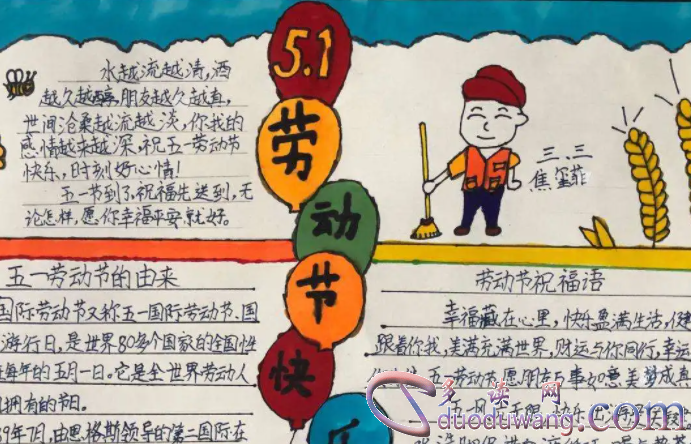 水越流越清,酒
越久越醇,朋友越久越真,
世间沧桑越流越淡,你我的
感情越来越深,祝五一劳动节
快乐,时刻好心情!
五一节到了,祝福先送到,无
论怎样,愿你幸福平安就好。
5.1
劳
动
节
快
乐
三.三
焦
五一劳动节的由来
国际劳动节又称五一国际劳动节、国
游行日,是世界80多个国家的全国性
每年的五月一日。它是全世界劳动人
拥有的节日。
9年7月,由恩格斯领导的第二国际在
劳动节祝福语
幸福藏在心里,快乐盈满生活,健
跟着你我,美满充满世界,财运与你同行,幸运
五一劳动节,愿朋友与事如意,美梦成真
多读网
duoduwang.com